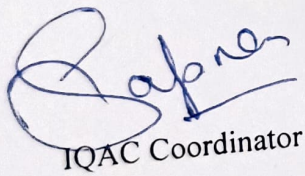 Sapna
IQAC Coordinator